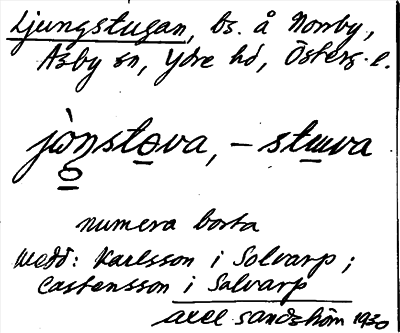 Ljungstugan, bs. å Norrby,
Asby sn, Ydre hd, Österg. l.
jòn̥stova, – stɯva
numera borta
Medd: Karlsson i Solvarp;
Castensson i Salvarp
Axel Sandström 1930